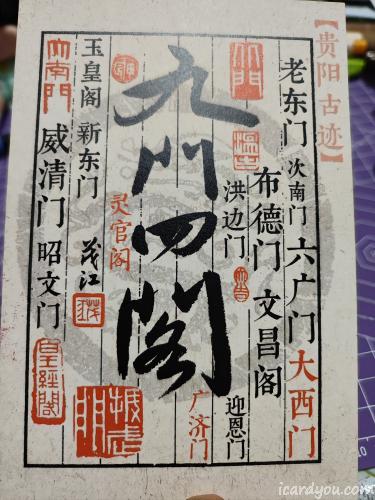 【贵阳古迹】
老东门 次南门 六广门 大西门
布德门 文昌阁
洪边门
迎恩门
九门四阁
广济门
灵官阁
茂江
玉皇阁 新东门
大南门
威清门 昭文门
皇经阁
icardyou.com